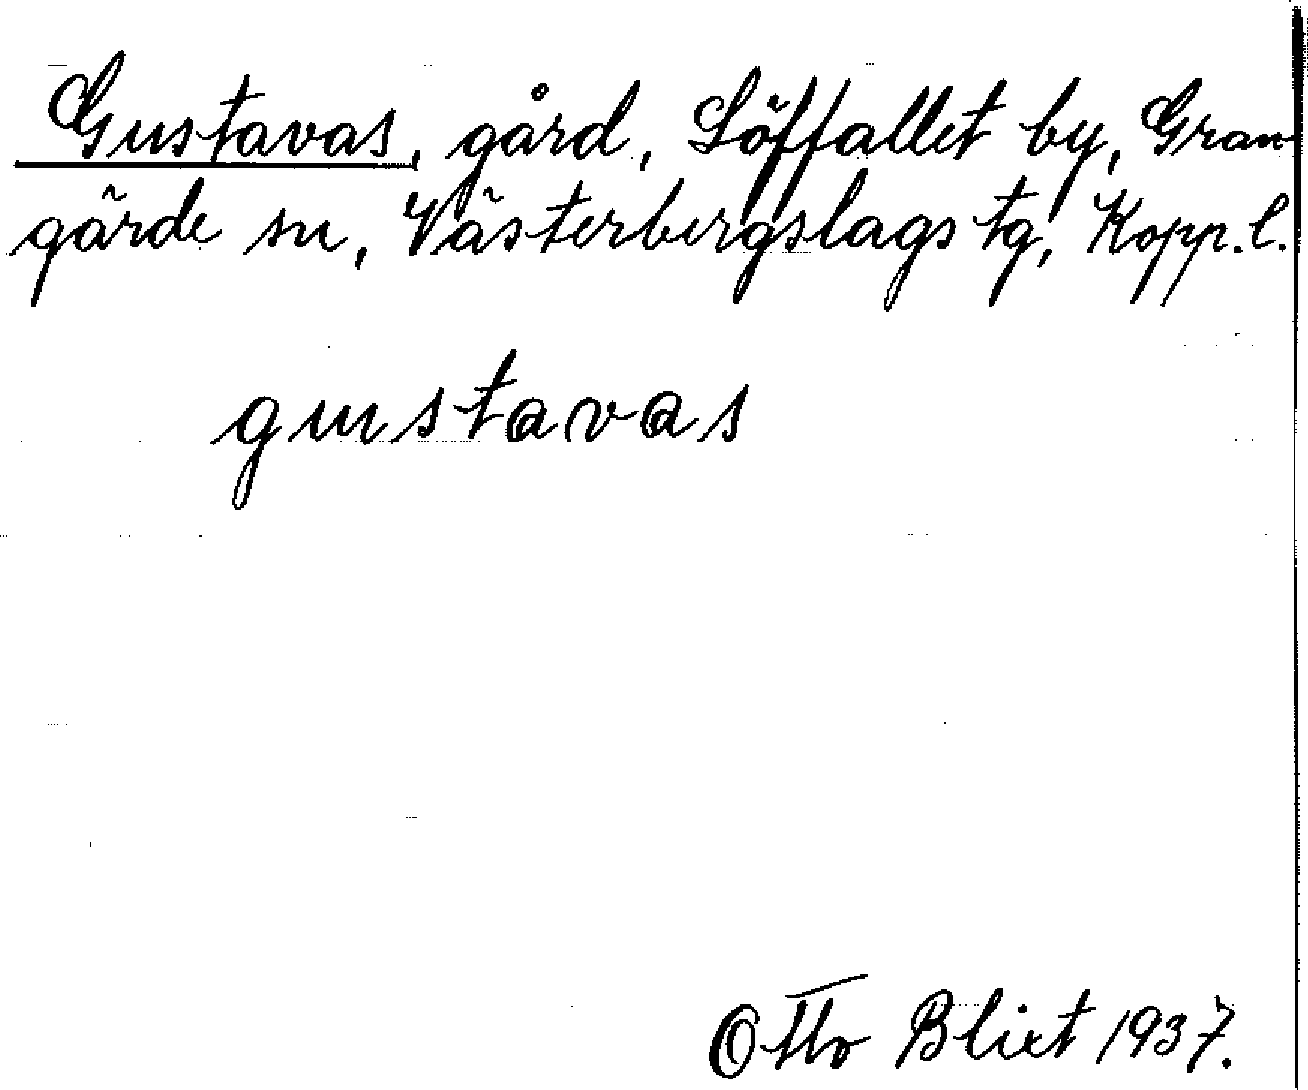 Gustavas, gård, Löffallet by, Gran-
gärde sn, Västerbergslags tg, Kopp. l.
gustavas
Otto Blixt 1937.